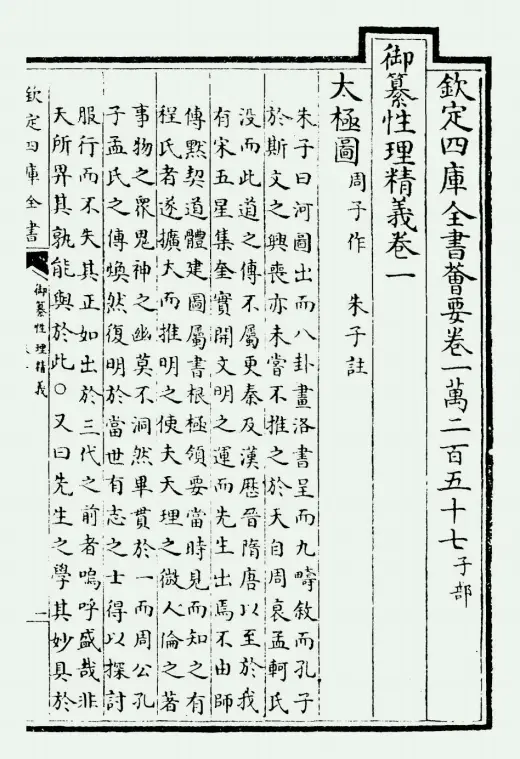 欽定四庫全書薈要卷一萬二百五十七子部
御纂性理精義卷一
太極圖 周子作 朱子註
朱子曰河圖出而八卦畫洛書呈而九疇敘而孔子
於斯文之興喪亦未嘗不推之於天自周衰孟軻氏
没而此道之傳不屬更秦及漢歴晉隋唐以至於我
有宋五星集奎實開文明之運而先生出焉不由師
傳黙契道體建圖屬書根極領要當時見而知之有
程氏者遂擴大而推明之使夫天理之微人倫之著
事物之衆鬼神之幽莫不洞然畢貫於一而周公孔
子孟氏之傳煥然復明於當世有志之士得以探討
服行而不失其正如出於三代之前者嗚呼盛哉非
天所畀其孰能與於此○又曰先生之學其妙具於
欽定四庫全書
御纂性理精義
一